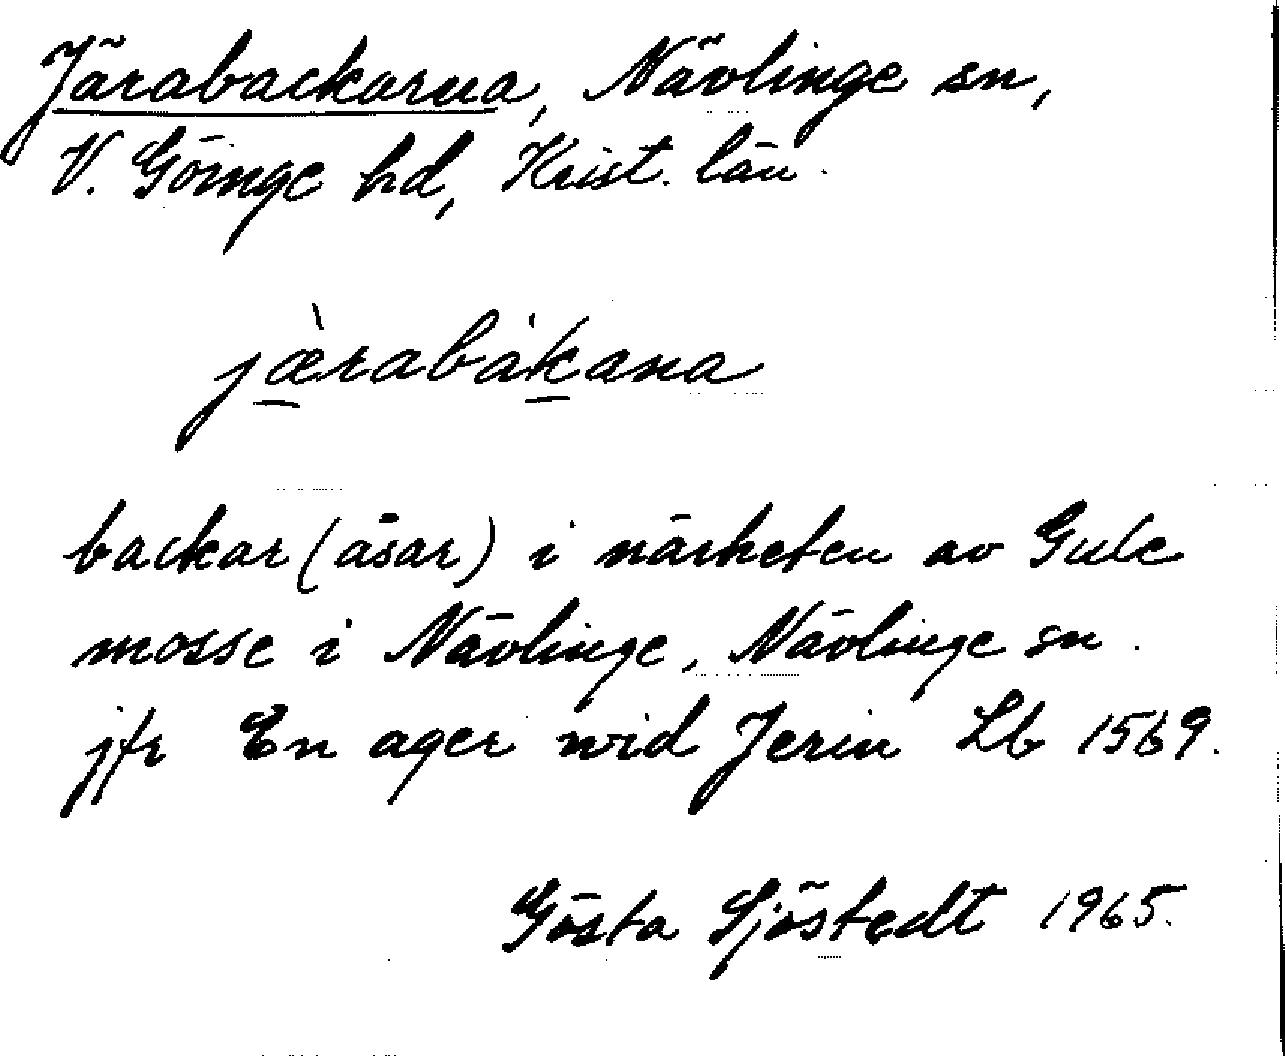 Järabackarna, Nävlinge sn,
V. Göinge hd, Krist. län.
jæ̀rabàkana
backar (åsar) i närheten av Gule
mosse i Nävlinge, Nävlinge sn.
jfr En ager wid Jerin Lb 1569.
Gösta Sjöstedt 1965.